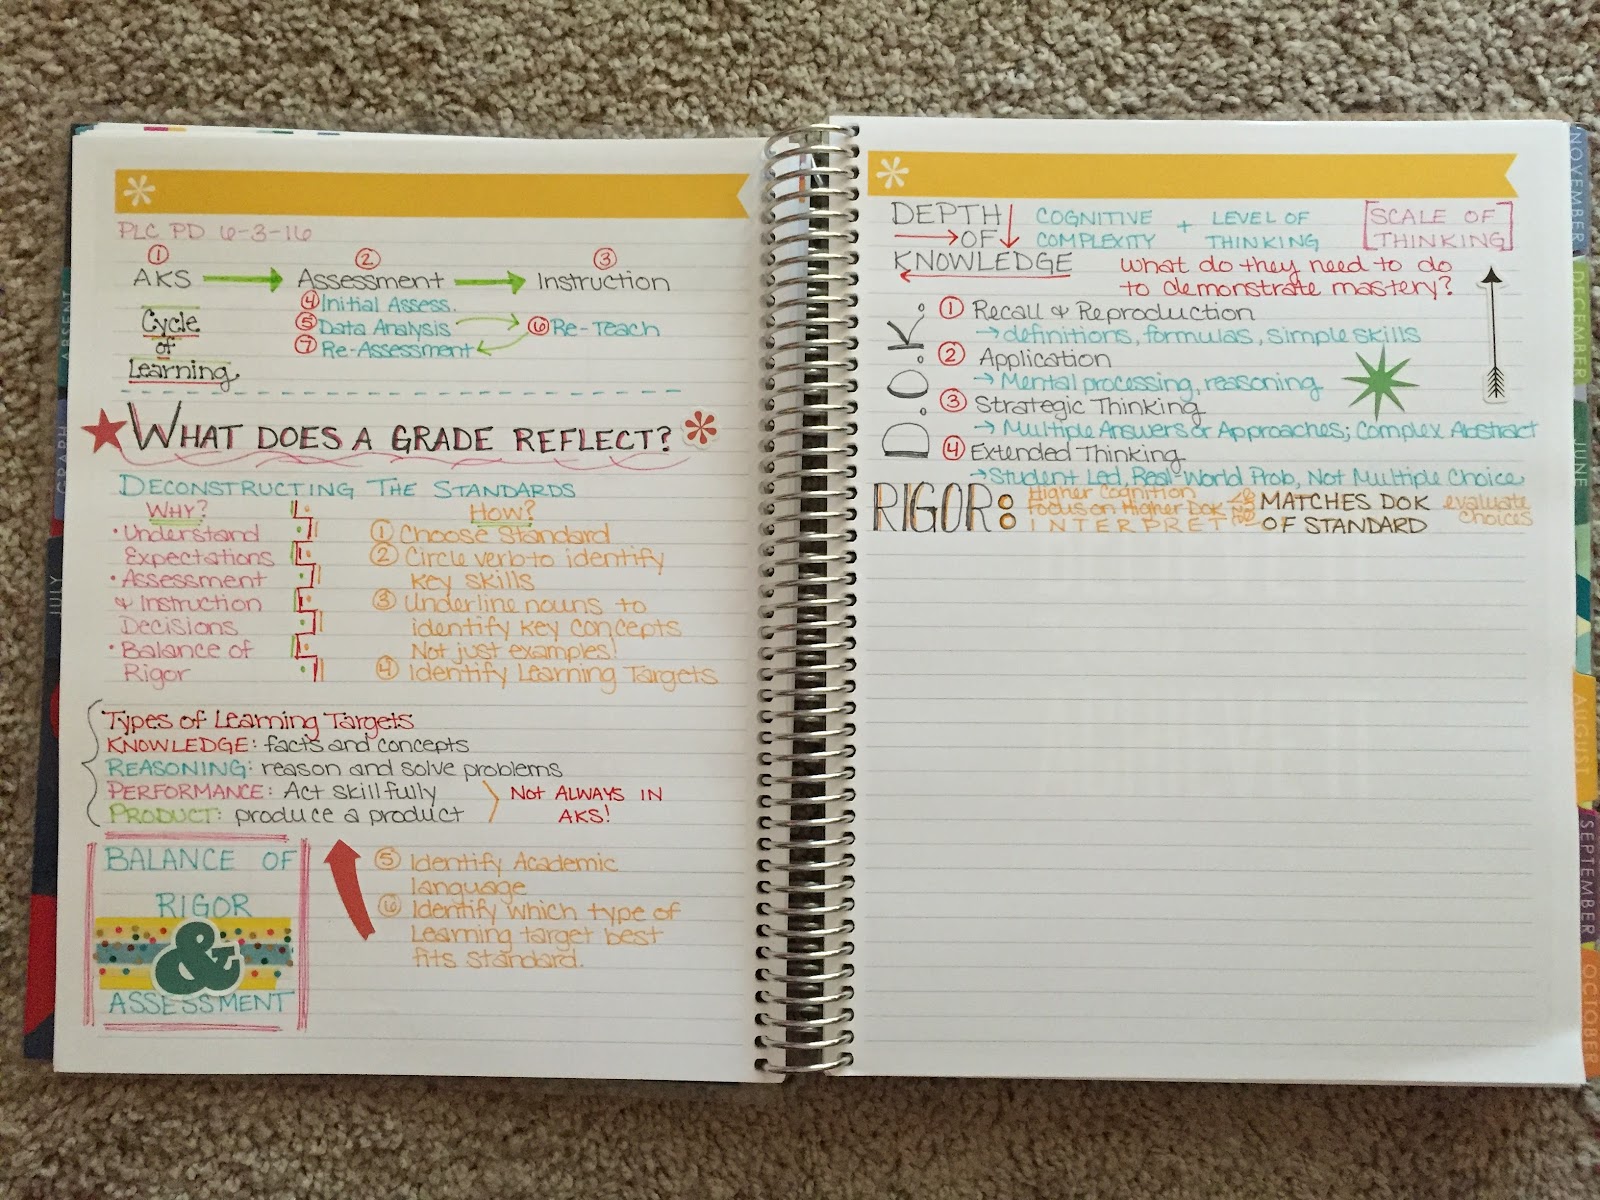 PLC PD 6-3-16
① ② ③
AKS Assessment Instruction
④ Initial Assess.
Cycle ⑤ Data Analysis ⑥ Re-Teach
of ⑦ Re-Assessment
Learning
WHAT DOES A GRADE REFLECT?
DECONSTRUCTING THE STANDARDS
WHY?
• Understand
Expectations
• Assessment
& Instruction
Decisions
• Balance of
Rigor
HOW?
① Choose Standard
② Circle verb to identify
key skills
③ Underline nouns to
identify key concepts
Not just examples!
④ Identify Learning Targets
Types of Learning Targets
KNOWLEDGE: facts and concepts
REASONING: reason and solve problems
PERFORMANCE: Act skillfully
PRODUCT: produce a product
NOT ALWAYS IN
AKS!
BALANCE OF
RIGOR
&
ASSESSMENT
⑤ Identify Academic
language
⑥ Identify which type of
Learning target best
fits standard.
DEPTH
OF
KNOWLEDGE
COGNITIVE + LEVEL OF
COMPLEXITY THINKING
[SCALE OF
THINKING]
What do they need to do
to demonstrate mastery?
① Recall & Reproduction
→ definitions, formulas, simple skills
② Application
→ Mental processing, reasoning
③ Strategic Thinking
→ Multiple Answers or Approaches; Complex Abstract
④ Extended Thinking
→ Student Led, Real-World Prob, Not Multiple Choice
RIGOR:
Higher Cognition
Focus on Higher DOK
INTERPRET
MATCHES DOK
OF STANDARD
evaluate
choices
ABSENT
GRAPH
JULY
NOVEMBER
DECEMBER
JUNE
AUGUST
SEPTEMBER
OCTOBER